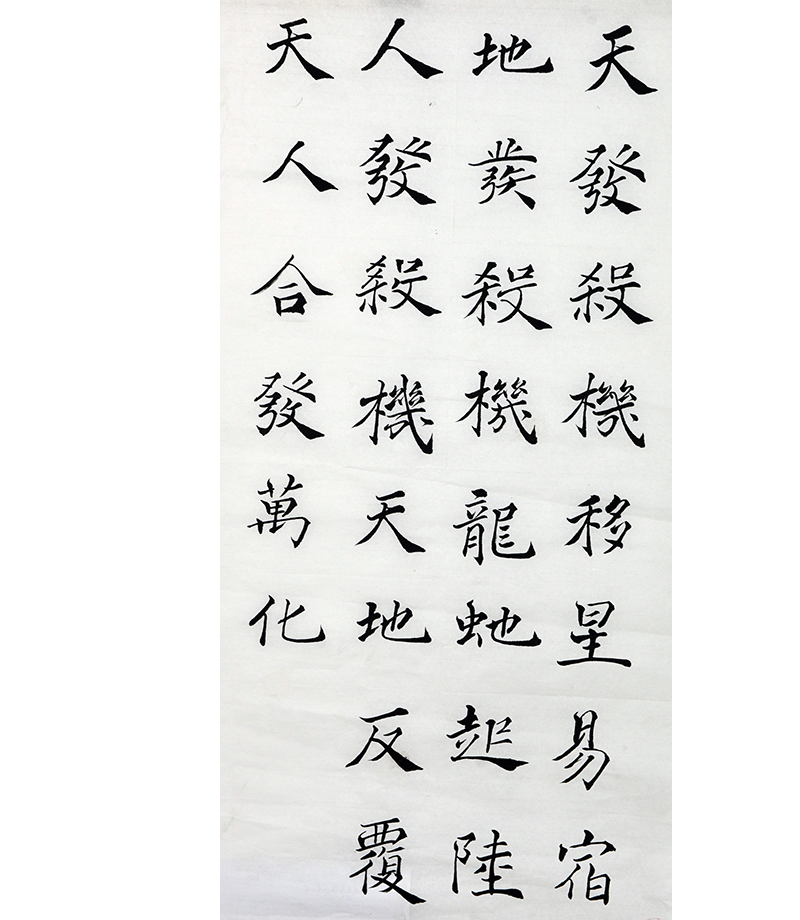 天發殺機移星易宿
地發殺機龍虵起陸
人發殺機天地反覆
天人合發萬化